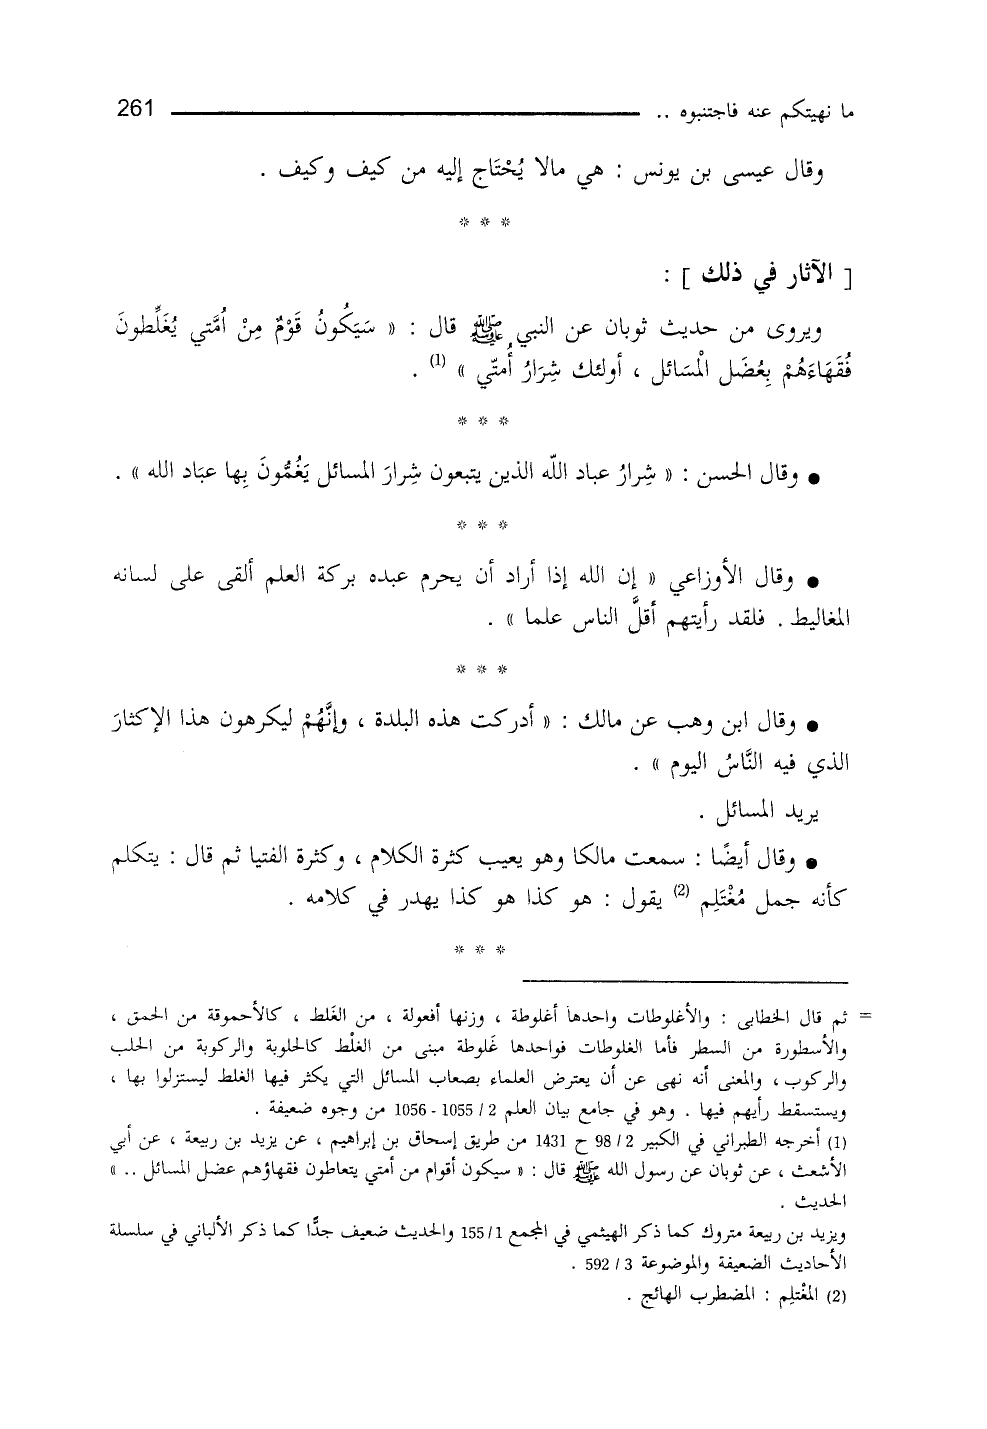 ما نهيتكم عنه فاجتنبوه .. 261
وقال عيسى بن يونس : هي مالا يُحْتَاج إليه من كيف وكيف .
* * *
[ الآثار في ذلك ] :
ويروى من حديث ثوبان عن النبي ﷺ قال : « سَيَكُونُ قَوْمٌ مِنْ أُمَّتي يُغَلِّطونَ
فُقَهَاءَهُمْ بِعُضَل الْمَسَائل ، أولئك شِرَارُ أُمتّي » (1) .
* * *
● وقال الحسن : « شِرارُ عباد الله الذين يتبعون شِرارَ المسائل يَغُمُّونَ بِها عبَاد الله » .
* * *
● وقال الأوزاعي « إن الله إذا أراد أن يحرم عبده بركة العلم ألقى على لسانه
المغاليط . فلقد رأيتهم أقلَّ الناس علما » .
* * *
● وقال ابن وهب عن مالك : « أدركت هذه البلدة ، وإنَّهُمْ ليكرهون هذا الإكثارَ
الذي فيه النَّاسُ اليوم » .
يريد المسائل .
● وقال أيضًا : سمعت مالكا وهو يعيب كثرة الكلام ، وكثرة الفتيا ثم قال : يتكلم
كأنه جمل مُغْتَلِم (2) يقول : هو كذا هو كذا يهدر في كلامه .
* * *
= ثم قال الخطابى : والأغلوطات واحدها أغلوطة ، وزنها أفعولة ، من الغَلط ، كالأحموقة من الحمق ،
والأسطورة من السطر فأما الغلوطات فواحدها غَلوطة مبنى من الغلْط كالحلوبة والركوبة من الحلب
والركوب ، والمعنى أنه نهى عن أن يعترض العلماء بصعاب المسائل التي يكثر فيها الغلط ليستزلوا بها ،
ويستسقط رأيهم فيها . وهو في جامع بيان العلم 2 / 1055 - 1056 من وجوه ضعيفة .
(1) أخرجه الطبراني في الكبير 2 / 98 ح 1431 من طريق إسحاق بن إبراهيم ، عن يزيد بن ربيعة ، عن أبي
الأشعث ، عن ثوبان عن رسول الله ﷺ قال : « سيكون أقوام من أمتي يتعاطون فقهاؤهم عضل المسائل .. »
الحديث .
ويزيد بن ربيعة متروك كما ذكر الهيثمي في المجمع 1 / 155 والحديث ضعيف جدًّا كما ذكر الألباني في سلسلة
الأحاديث الضعيفة والموضوعة 3 / 592 .
(2) المغْتلِم : المضطرب الهائج .